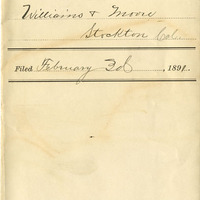 Williams & Moore
Stockton Cal.
Filed February 3d, 1891.